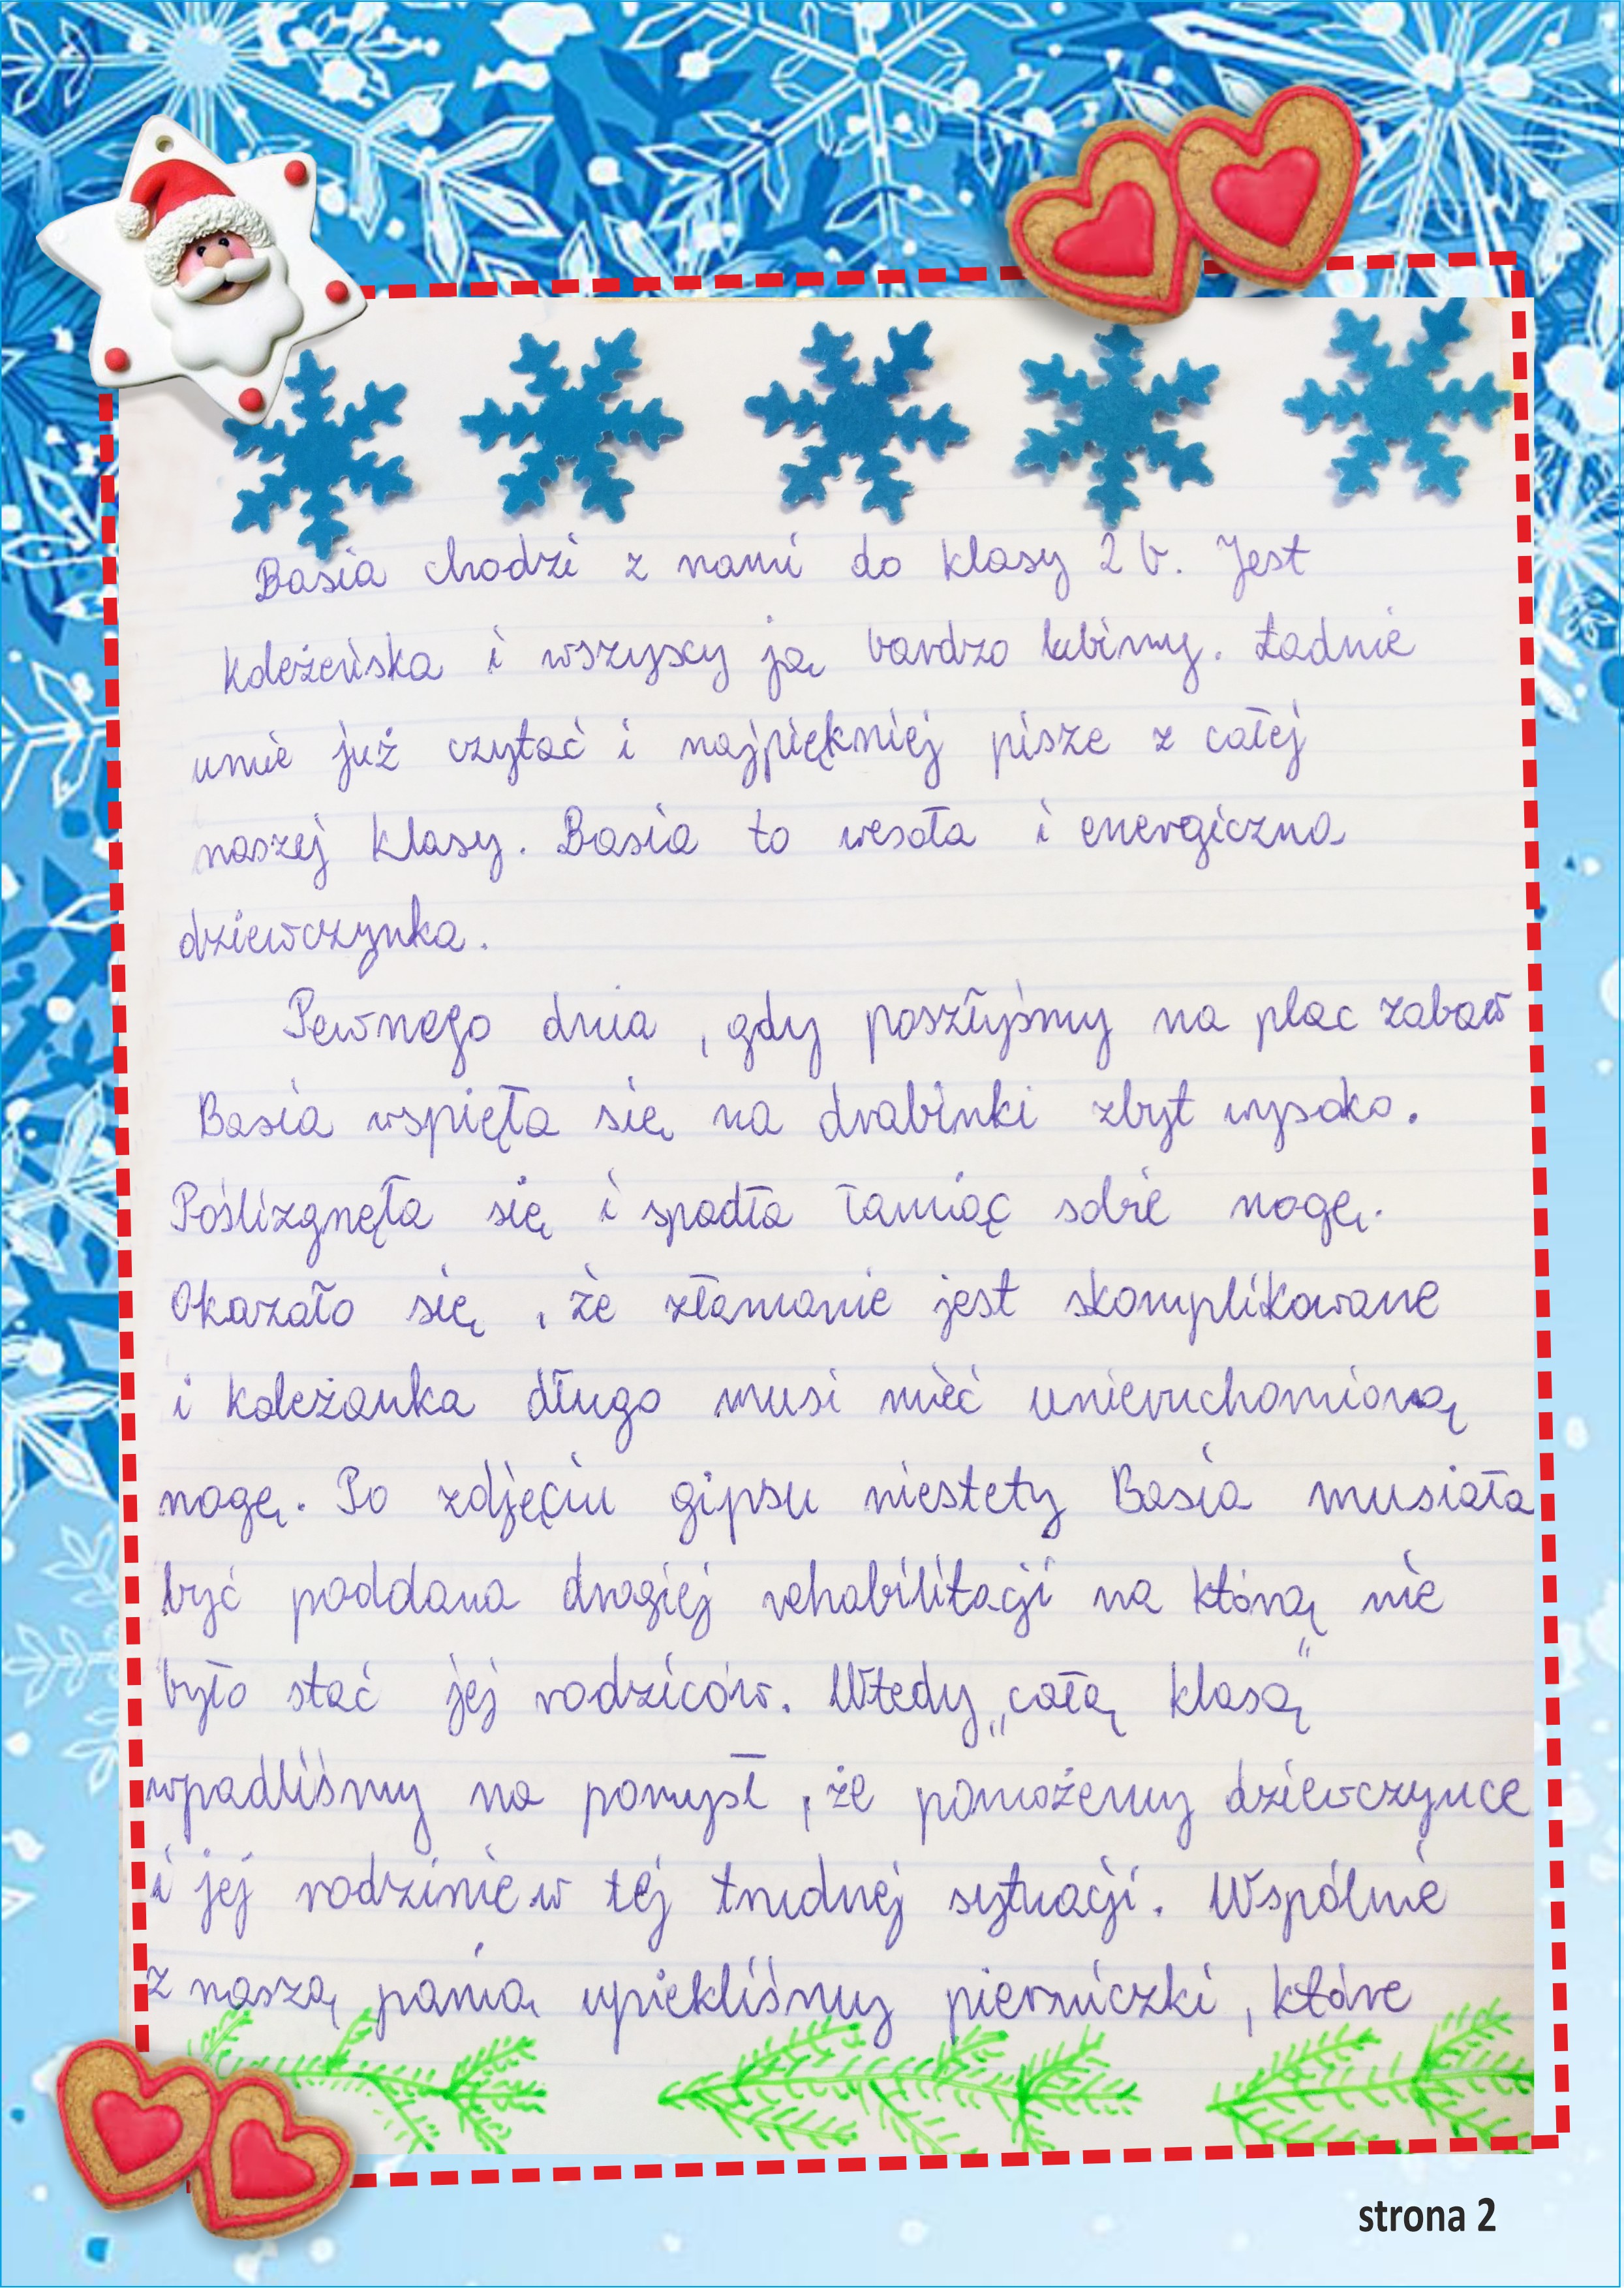 Basia chodzi z nami do klasy 2 b. Jest
koleżeńska i wszyscy ją bardzo lubimy. Ładnie
umie już czytać i najpiękniej pisze z całej
naszej klasy. Basia to wesoła i energiczna
dziewczynka.
Pewnego dnia , gdy poszłyśmy na plac zabaw
Basia wspięła się na drabinki zbyt wysoko.
Poślizgnęła się i spadła łamiąc sobie nogę.
Okazało się , że złamanie jest skomplikowane
i koleżanka długo musi mieć unieruchomioną
nogę. Po zdjęciu gipsu niestety Basia musiała
być poddana drogiej rehabilitacji na którą nie
było stać jej rodziców. Wtedy „całą klasą”
wpadliśmy na pomysł , że pomożemy dziewczynce
i jej rodzinie w tej trudnej sytuacji. Wspólnie
z naszą panią upiekliśmy pierniczki, które
strona 2